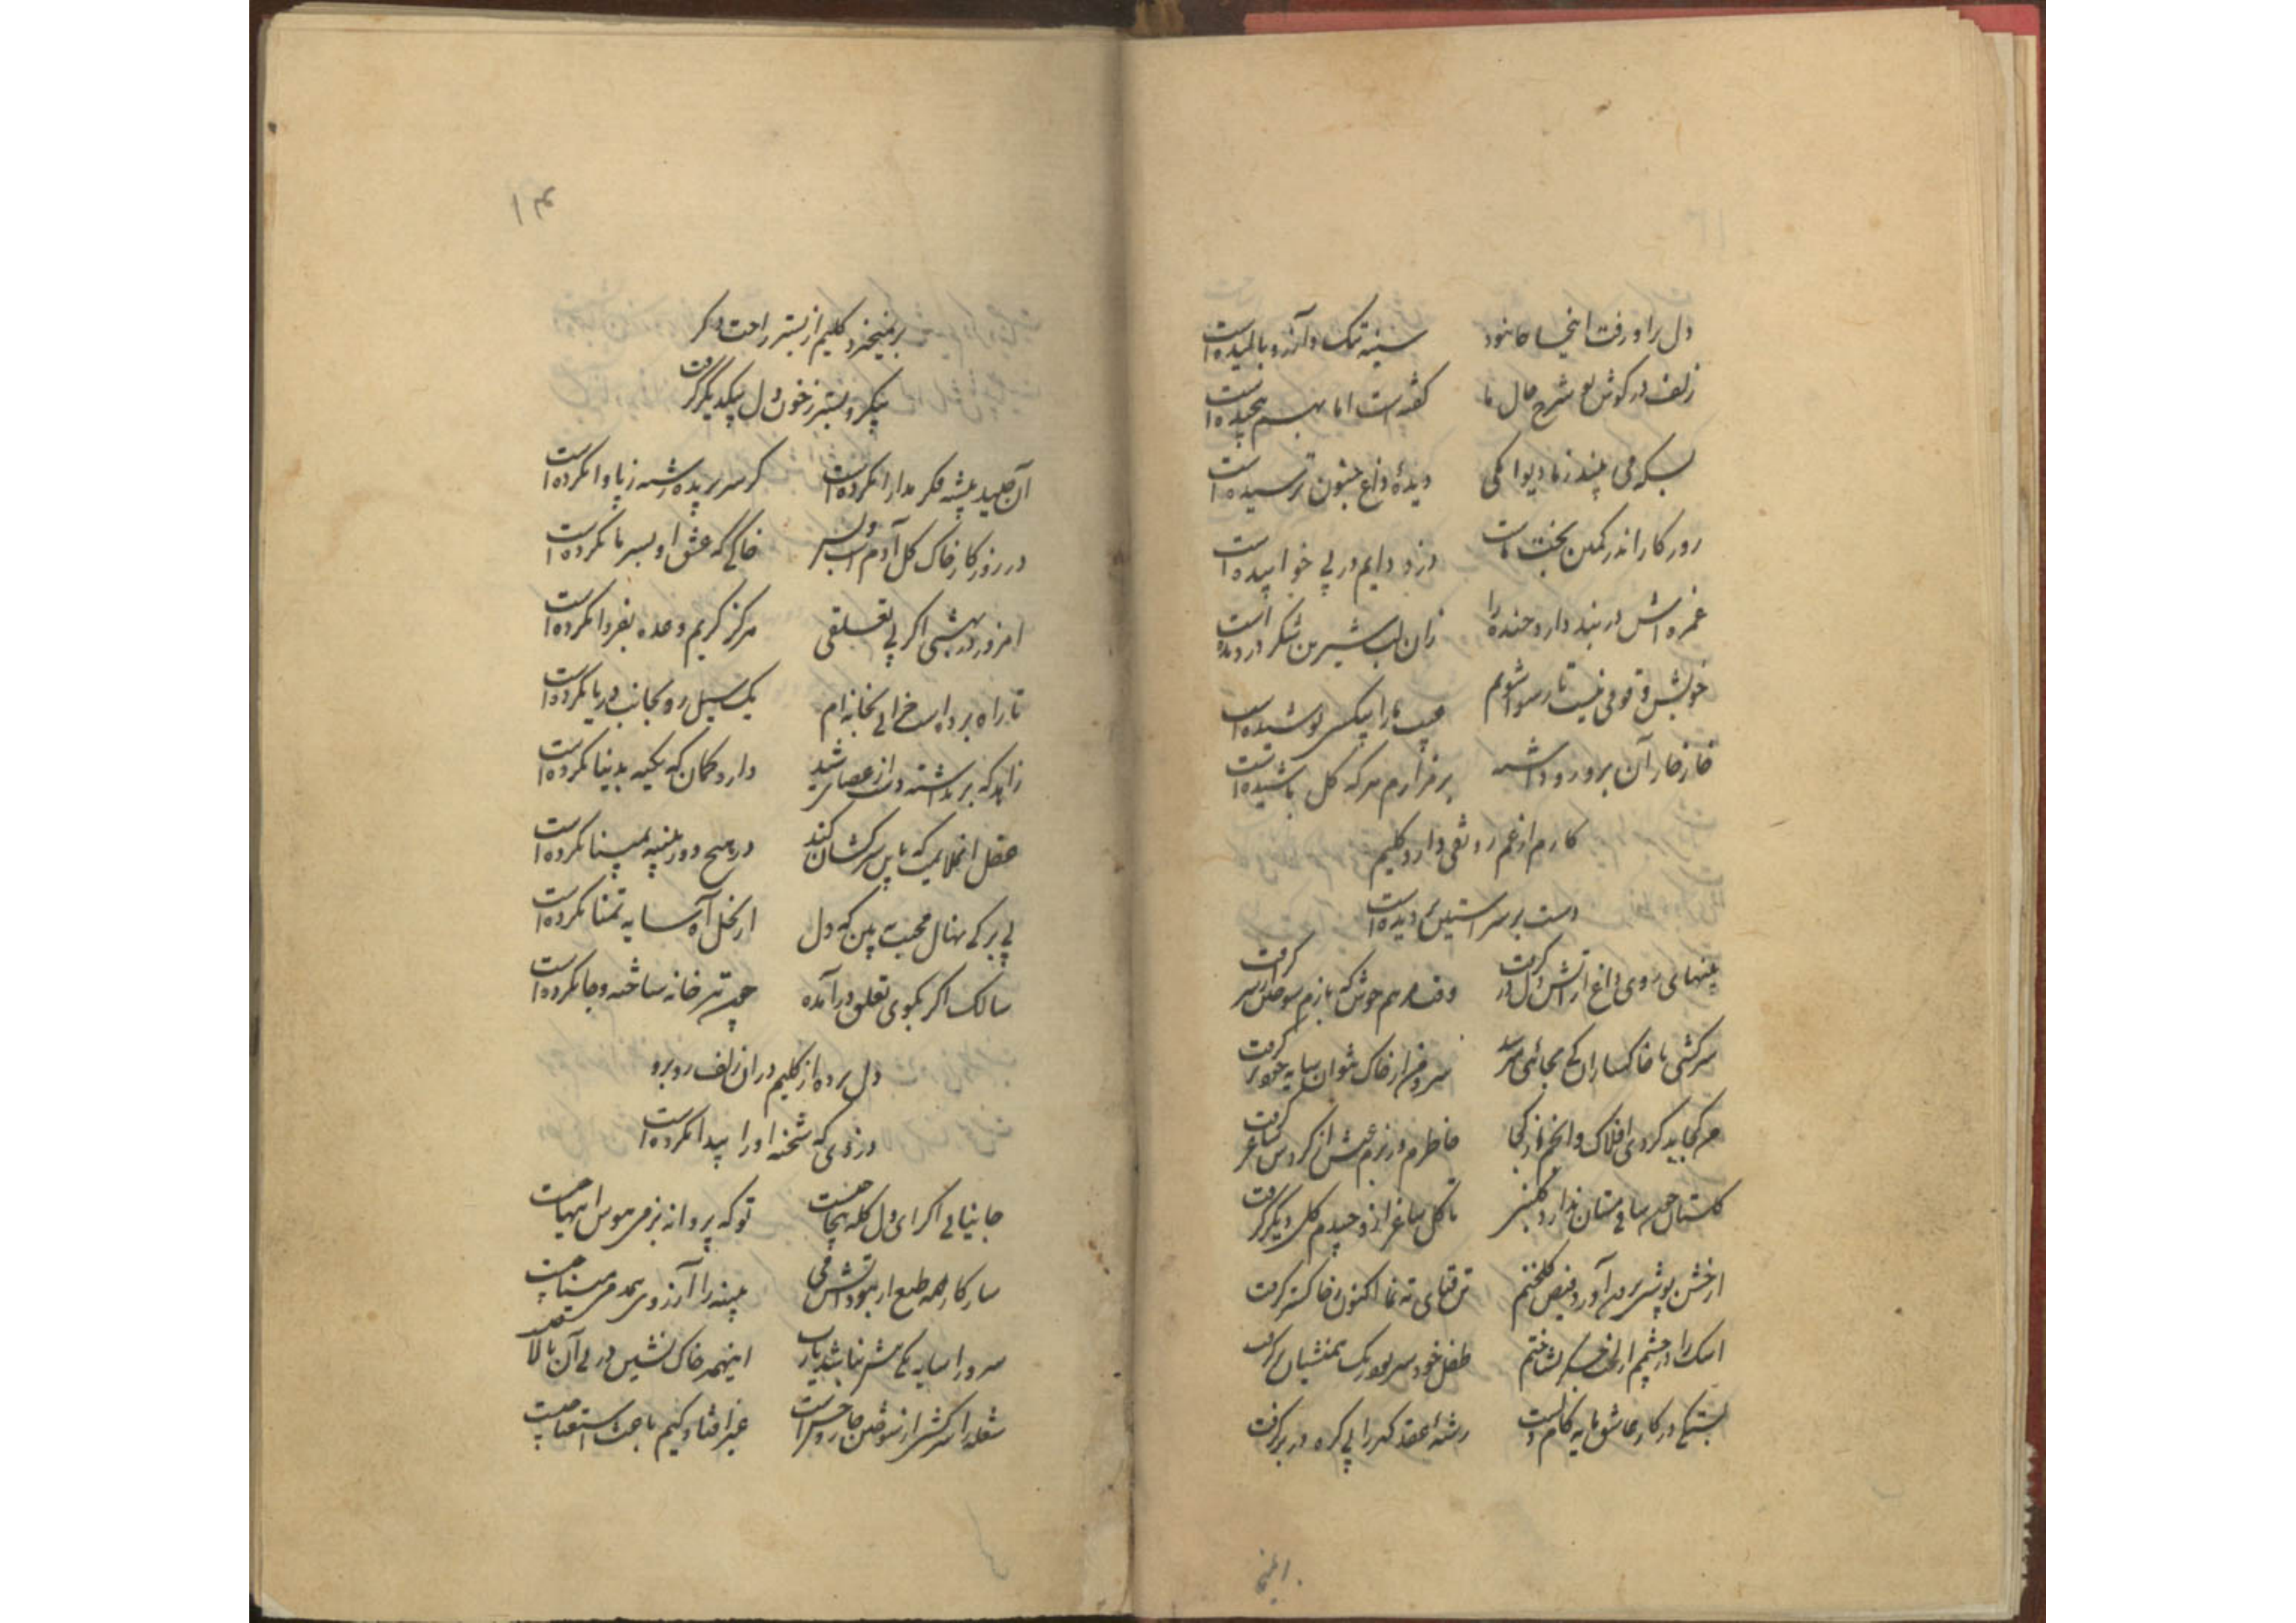 دل براو رفت اینجا جا نبود سینه تنک و آرزو بالیده است
زلف در کوش تو شرح حال ما کفته است اما بهم پیچیده است
بسکه می پیند ز ما دیوانکی دیدهٔ داغ جنون ترسیده است
روزکار اندر کمین بخت ماست دزد دایم در پی خوابیده است
غمزه اش در بند دارد خنده را زان لب شیرین شکر دزدیده است
خویش و قومی نیست تا رسوا شویم عیب ما را بیکسی پوشیده است
خار خار آن برو رو داشته بر مزارم هر که کل پاشیده است
کارم از غم رونقی دارد کلیم
دست بر سر آستین بر دیده است
پنبهای روی داغ از آتش دل در کرفت وقت مرهم خوش که بازم سوختن از سر کرفت
سرکشی با خاکساران کی بجائی میرسد سرو من از خاک نتوان سایه خود بر کرفت
هر کجا بد کردی افلاک و انجم از کجا خاطرم در بزم عیش از کردش ساغر کرفت
کلستان چون ساقی مستان ندارد کلبنی تا کل ساغر ازو چیدم کل دیکر کرفت
آتش پوشی برون آورد فیض کلخنم تن قبای ته نما اکنون ز خاکستر کرفت
اشک را در چشمم از لخت جکر نشناختم طفل خودسر بود رنک همنشینان کرفت
بستکی در کار عاشق مایه کام دلست رشته عقد کهر را بی کره در بر کرفت
۱۴
برنمیخیزد کلیم از بستر راحت دکر
پیکر و بستر ز خون دل بیکدیکر کرفت
آن صید پیشه فکر مدارا نکرده است کر سر بریده رشته ز پا وا نکرده است
در روزکار خاک کل آدم است و بس خاکی که عشق او بسر ما نکرده است
امروز در بهشتی اکر بی تعلقی هرکز کریم وعده بفردا نکرده است
تا راه برده است خرابی بخانه ام یک سیل رو بجانب دریا نکرده است
زاهد که برنداشته دست از عصای شید دارد کمان که تکیه بدنیا نکرده است
عقل انقلابیست که با سرکشان کند در هیچ دور پنبه بمینا نکرده است
بی برکی نهال محبت ببین که دل از نخل آه سایه تمنا نکرده است
سالک اکر بکوی تعلق درآمده چون تیر خانه ساخته و جا نکرده است
دل برده از کلیم در ان زلف روبرو
دزدی که شحنه او را پیدا نکرده است
جانیابی اکر ای دل کله بیجاست تو که پروانه بزمی هوس اینهاست
سازکار همه طبع ار نبود آتش می پنبه را آرزوی همدمی میناست
سرو را سایه یکی بیشتر نباشد یارب اینهمه خاک نشین در پی آن بالا
شعله را سرکشی از سوختن خار و خس است غیر افتادکیم باعث استغناست